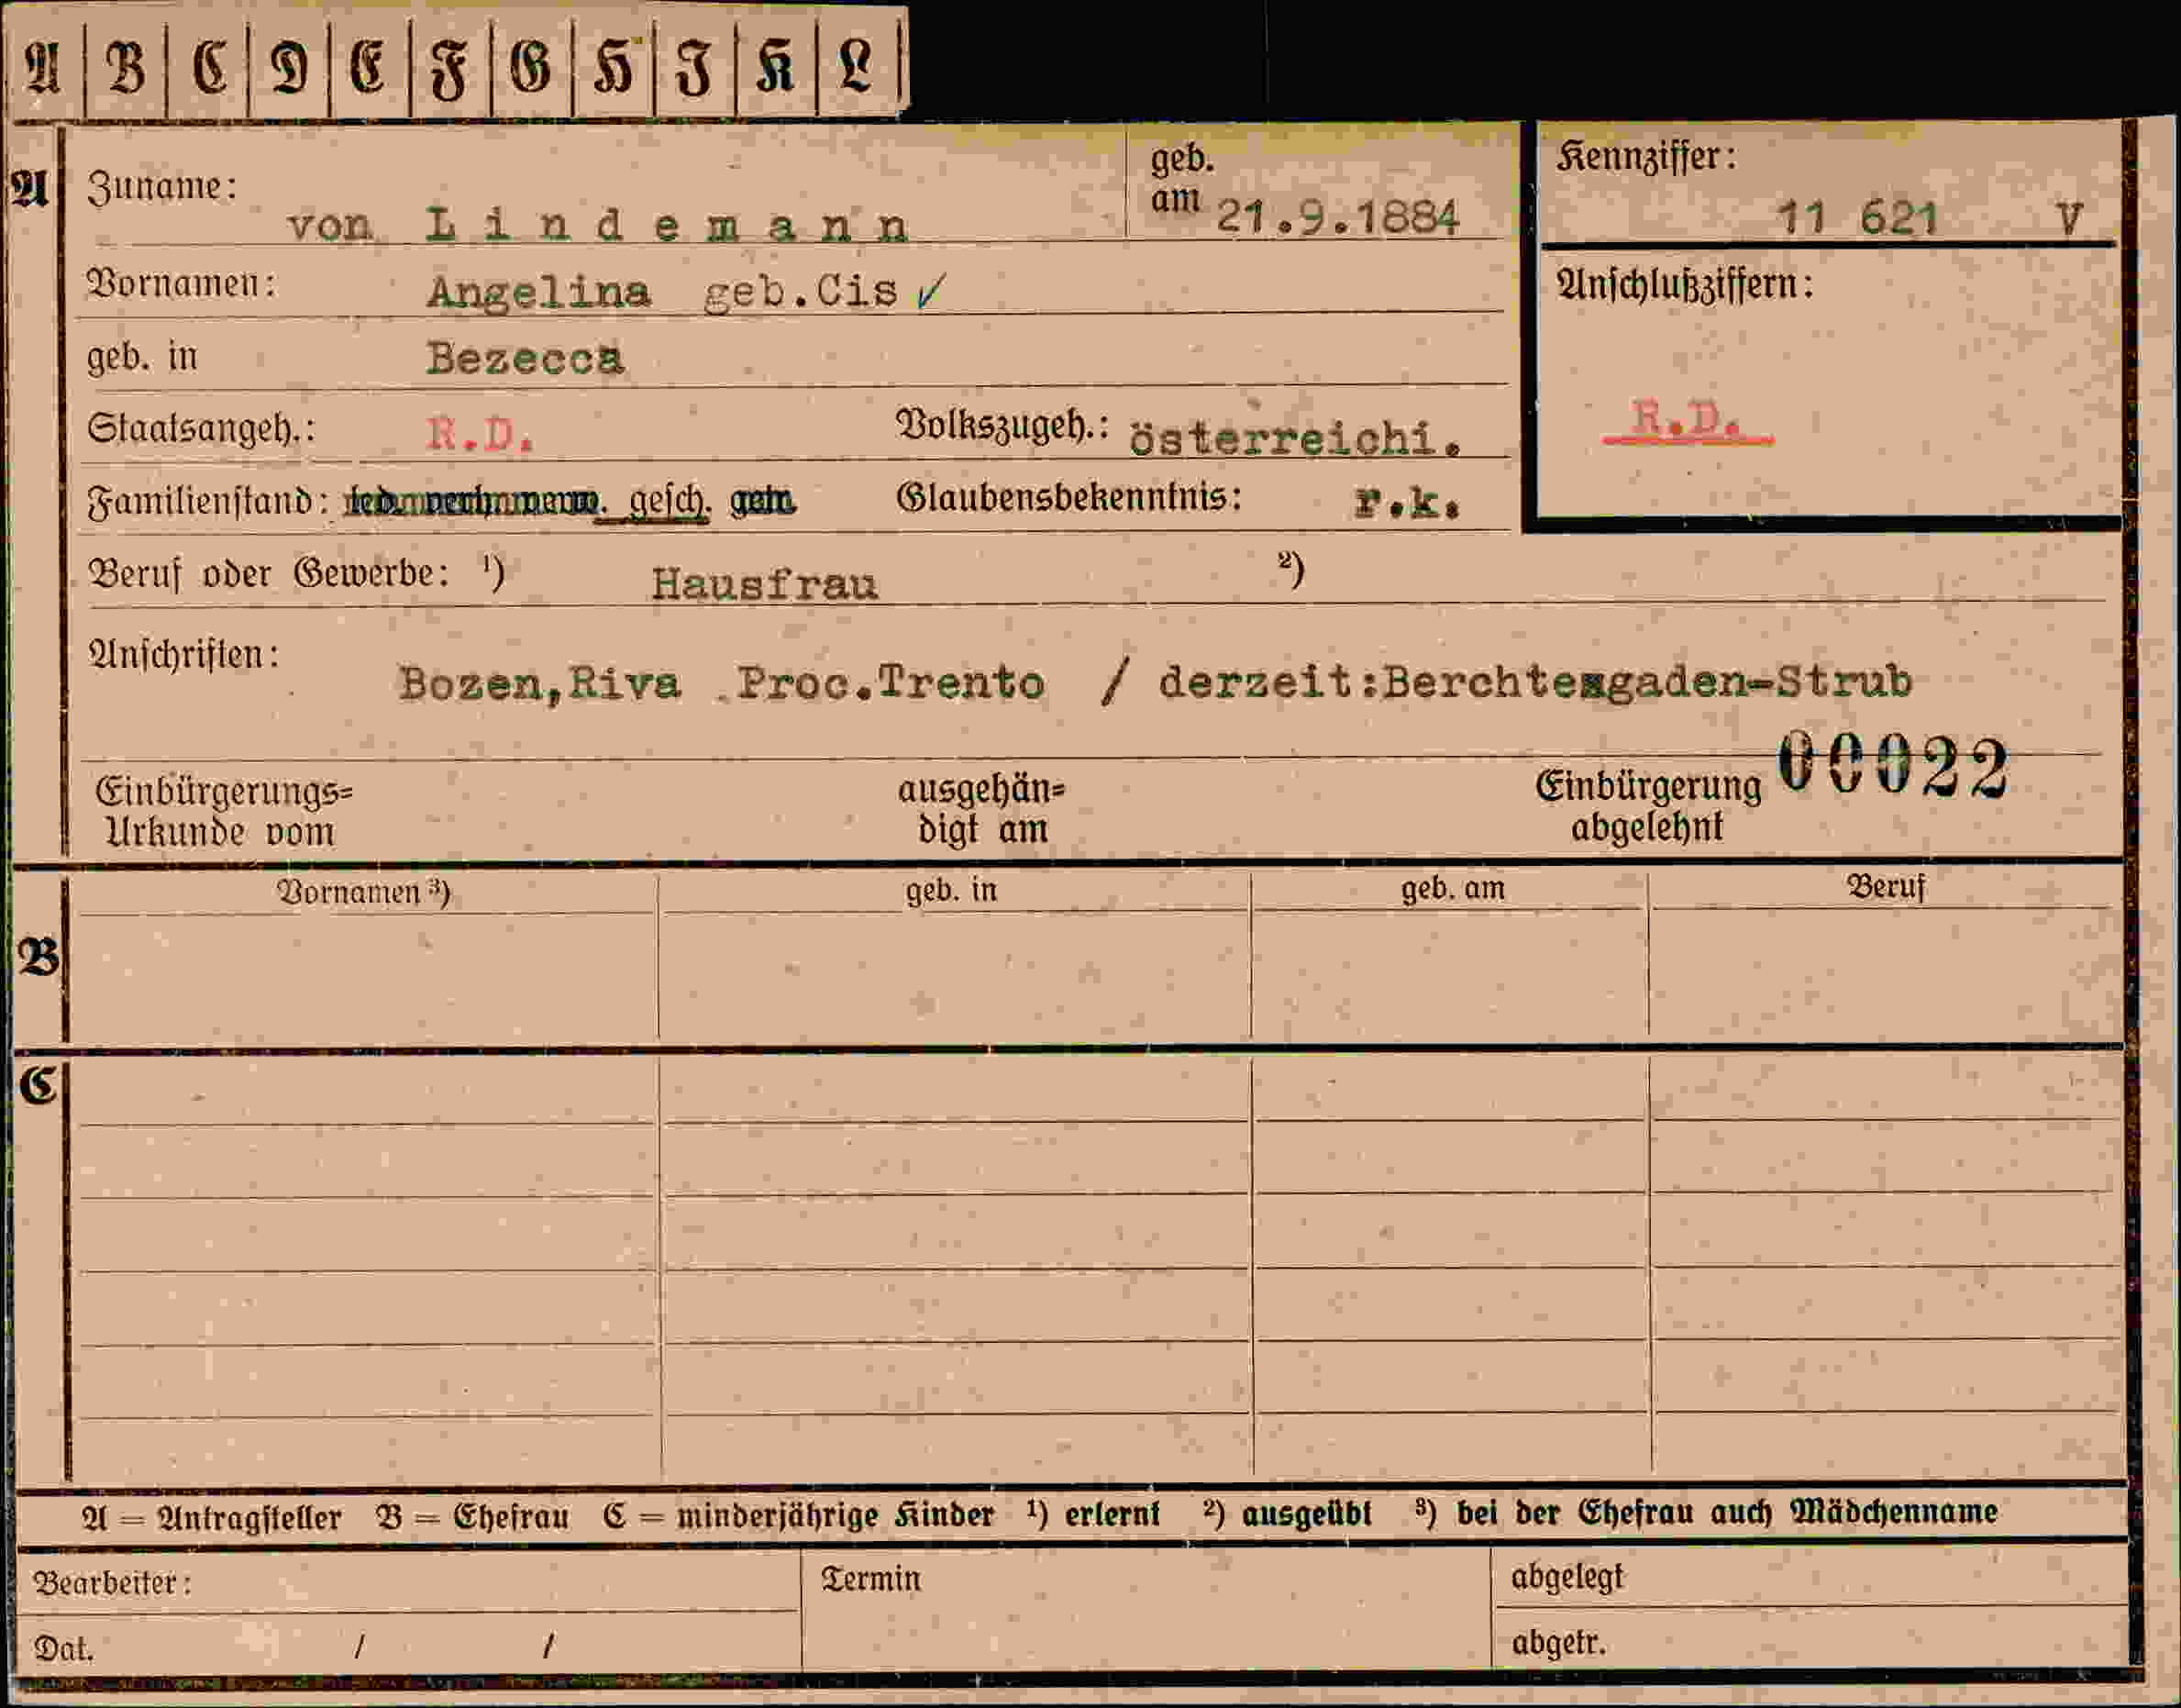 A B C D E F G H J K L
A
Zuname: von Lindemann geb. am 21.9.1884
Kennziffer: 11 621 V
Vornamen: Angelina geb.Cis ✓
Anschlußziffern:
geb. in Bezecca
Staatsangeh.: R.D. Volkszugeh.: österreichi.
R.D.
Familienstand: gesch. Glaubensbekenntnis: r.k.
Beruf oder Gewerbe: ¹) Hausfrau ²)
Anschriften: Bozen,Riva Proc.Trento / derzeit:Berchtesgaden-Strub
00022
Einbürgerungs= ausgehän= Einbürgerung
Urkunde vom digt am abgelehnt
Vornamen ³) geb. in geb. am Beruf
B
C
A = Antragsteller B = Ehefrau C = minderjährige Kinder ¹) erlernt ²) ausgeübt ³) bei der Ehefrau auch Mädchenname
Bearbeiter: Termin abgelegt
Dat. / / abgetr.